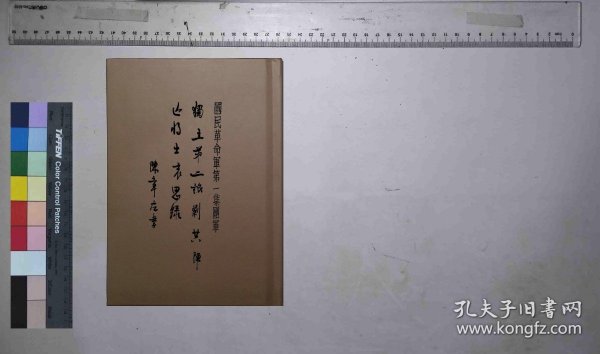 國民革命軍第一集團軍
獨立第二師剿共陣
亡將士哀思錄
TIFFEN
Color Control Patches
孔夫子旧书网
www.kongfz.com